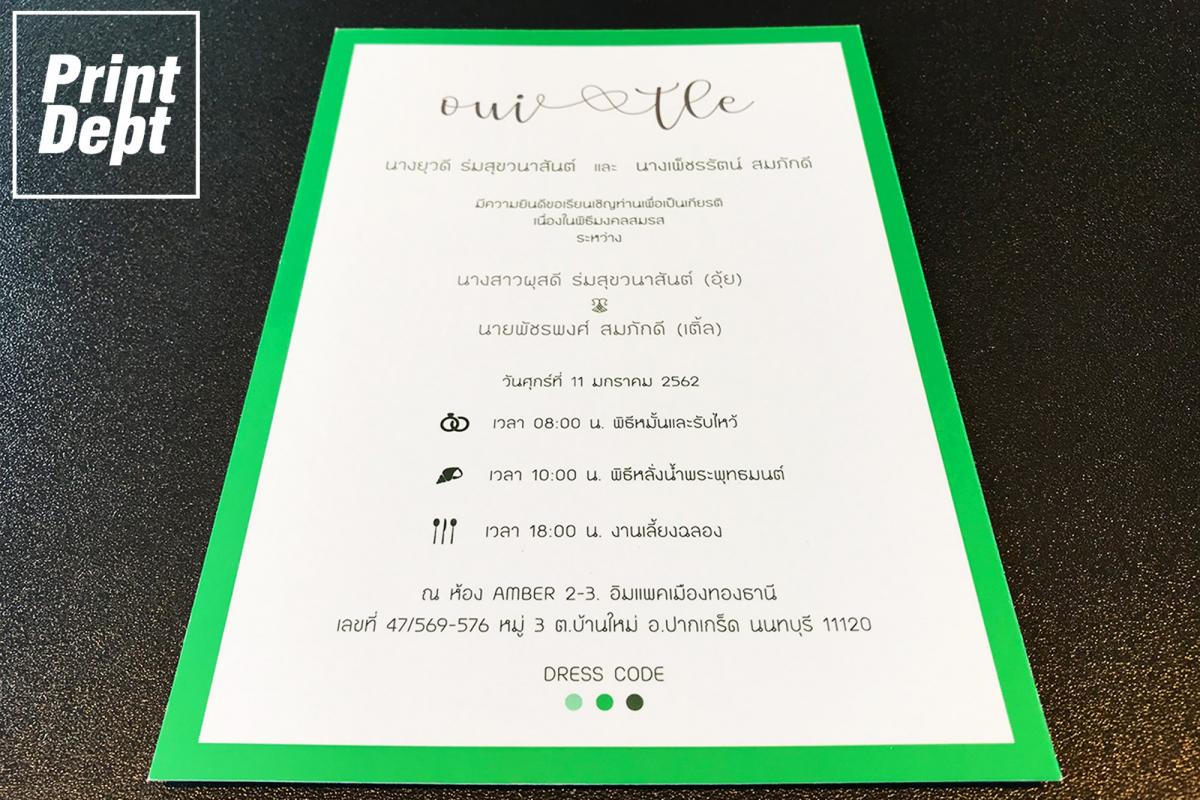 Print
Dept
oui tle
นางยุวดี ร่มสุขวนาสันต์ และ นางเพ็ชรรัตน์ สมภักดี
มีความยินดีขอเรียนเชิญท่านเพื่อเป็นเกียรติ
เนื่องในพิธีมงคลสมรส
ระหว่าง
นางสาวผุสดี ร่มสุขวนาสันต์ (อุ้ย)
นายพัชรพงศ์ สมภักดี (เติ้ล)
วันศุกร์ที่ 11 มกราคม 2562
เวลา 08:00 น. พิธีหมั้นและรับไหว้
เวลา 10:00 น. พิธีหลั่งน้ำพระพุทธมนต์
เวลา 18:00 น. งานเลี้ยงฉลอง
ณ ห้อง AMBER 2-3. อิมแพคเมืองทองธานี
เลขที่ 47/569-576 หมู่ 3 ต.บ้านใหม่ อ.ปากเกร็ด นนทบุรี 11120
DRESS CODE